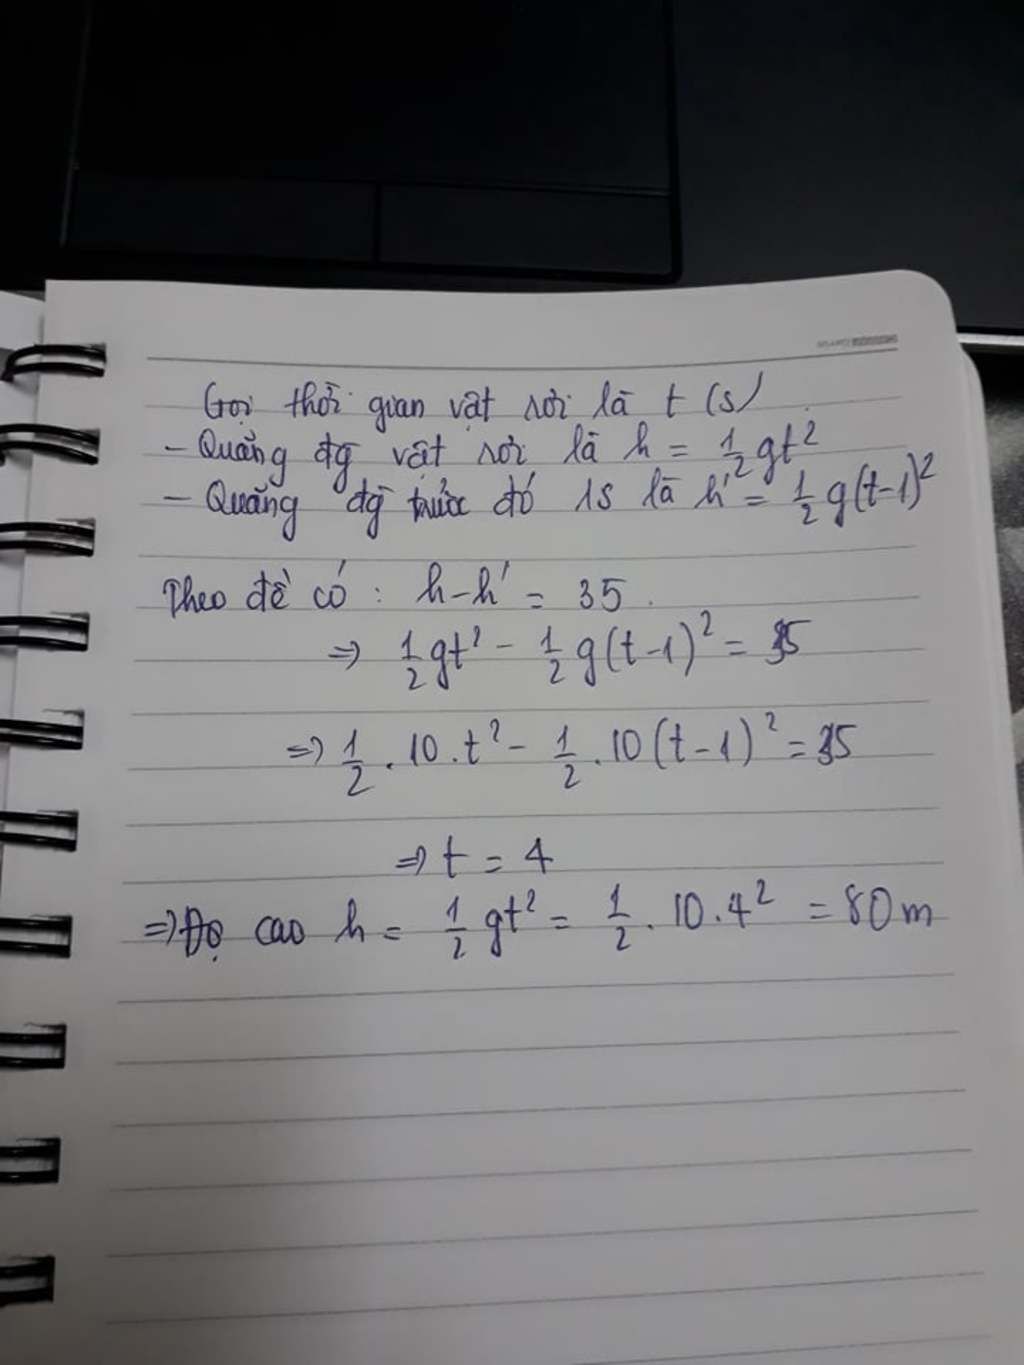 Gọi thời gian vật rơi là t (s)
- Quãng đg vật rơi là h = 1/2 gt²
- Quãng đg trước đó 1s là h' = 1/2 g(t-1)²
Theo đề có : h-h' = 35.
⇒ 1/2 gt² - 1/2 g(t-1)² = 35
⇒ 1/2 . 10 . t² - 1/2 . 10 (t-1)² = 35
⇒ t = 4
⇒ Độ cao h = 1/2 gt² = 1/2 . 10 . 4² = 80m